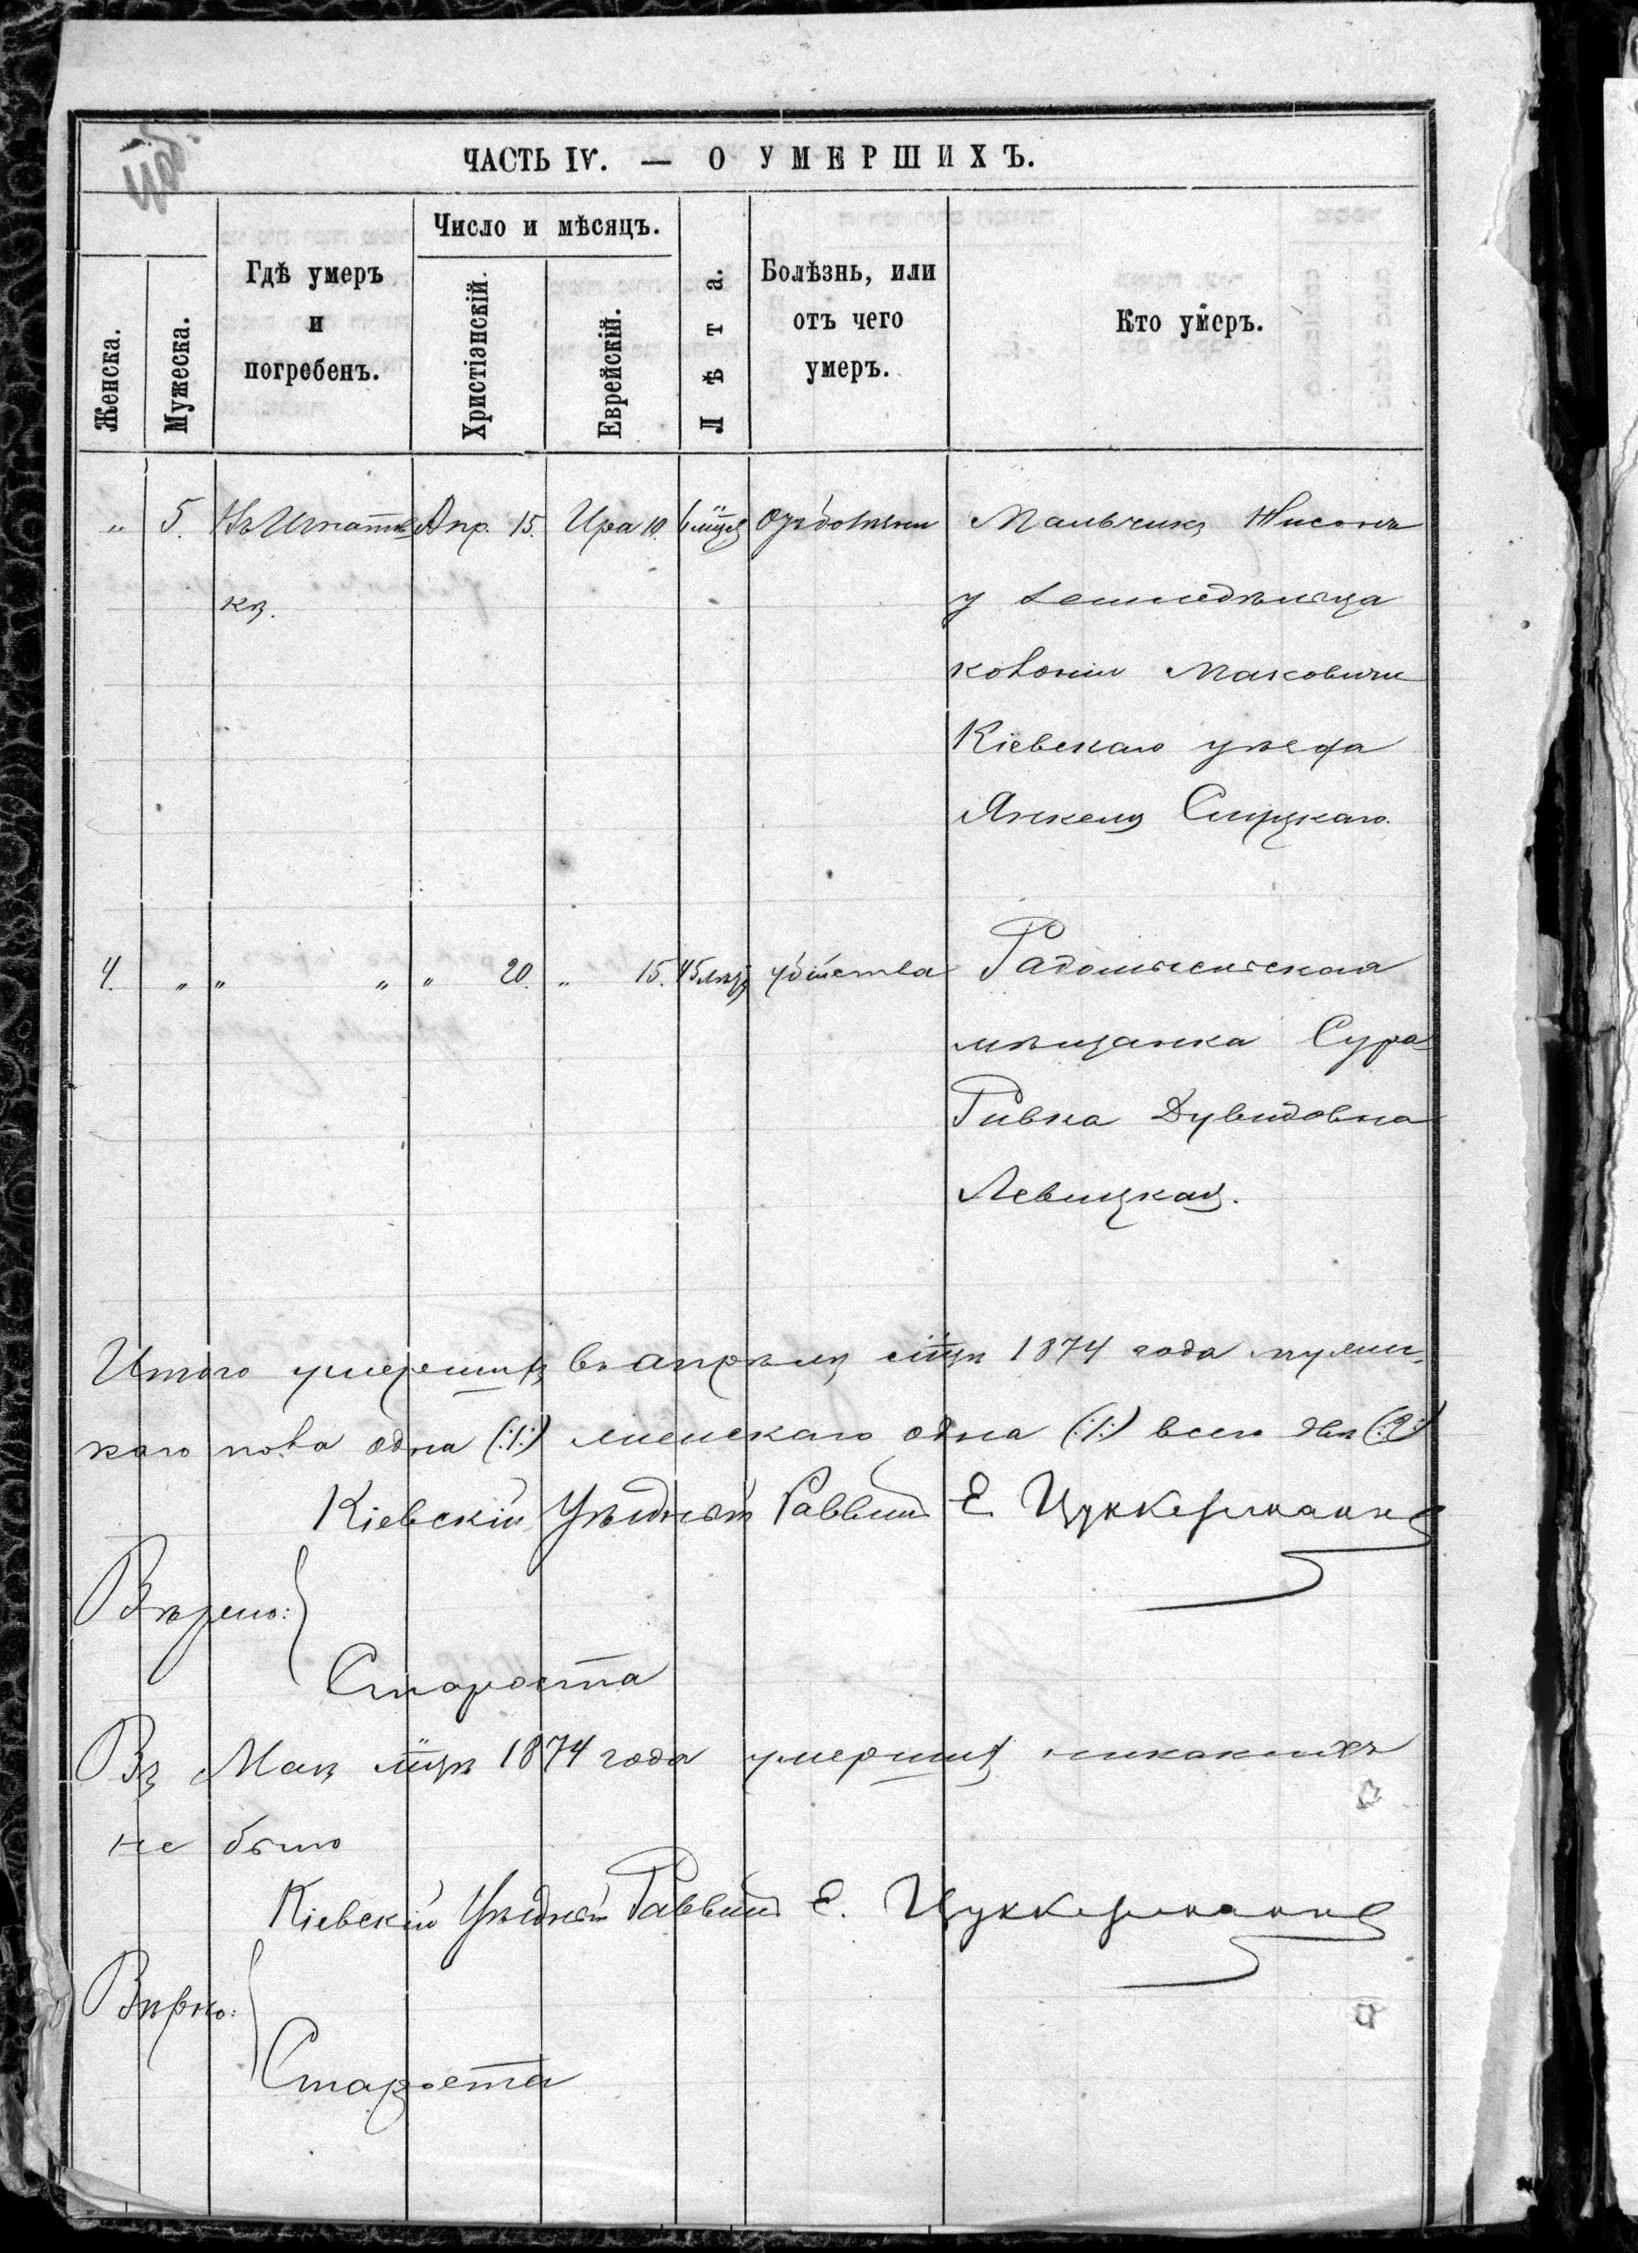 ЧАСТЬ IV. — О УМЕРШИХЪ.
Женска.
Мужеска.
Гдѣ умеръ
и
погребенъ.
Число и мѣсяцъ.
Христіянскій.
Еврейскій.
Лѣта.
Болѣзнь, или
отъ чего
умеръ.
Кто умеръ.
„ 5. Въ Игнатов Апр. 15. Ира 10. Мальчикъ Нисонъ
кѣ.
у земледѣльца
колоніи Маковичи
Кіевскаго уѣзда
Янкеля Слуцкаго.
4. „ „ „ „ 20. „ 15. 45 лѣтъ убійства Радомысльская
мѣщанка Сура
Ривка Дувидовна
Левицкая.
Итого умершихъ въ апрѣлѣ мцѣ 1874 года мужес-
каго пола одна (:1:) женскаго одна (:1:) всего двѣ (:2:)
Кіевскій Уѣздный Раввинъ Е Цуккерманъ
Вѣрно:
Староста
Въ Маѣ мцѣ 1874 года умершихъ никакихъ
не было
Кіевскій Уѣздный Раввинъ Е. Цуккерманъ
Вѣрно:
Староста